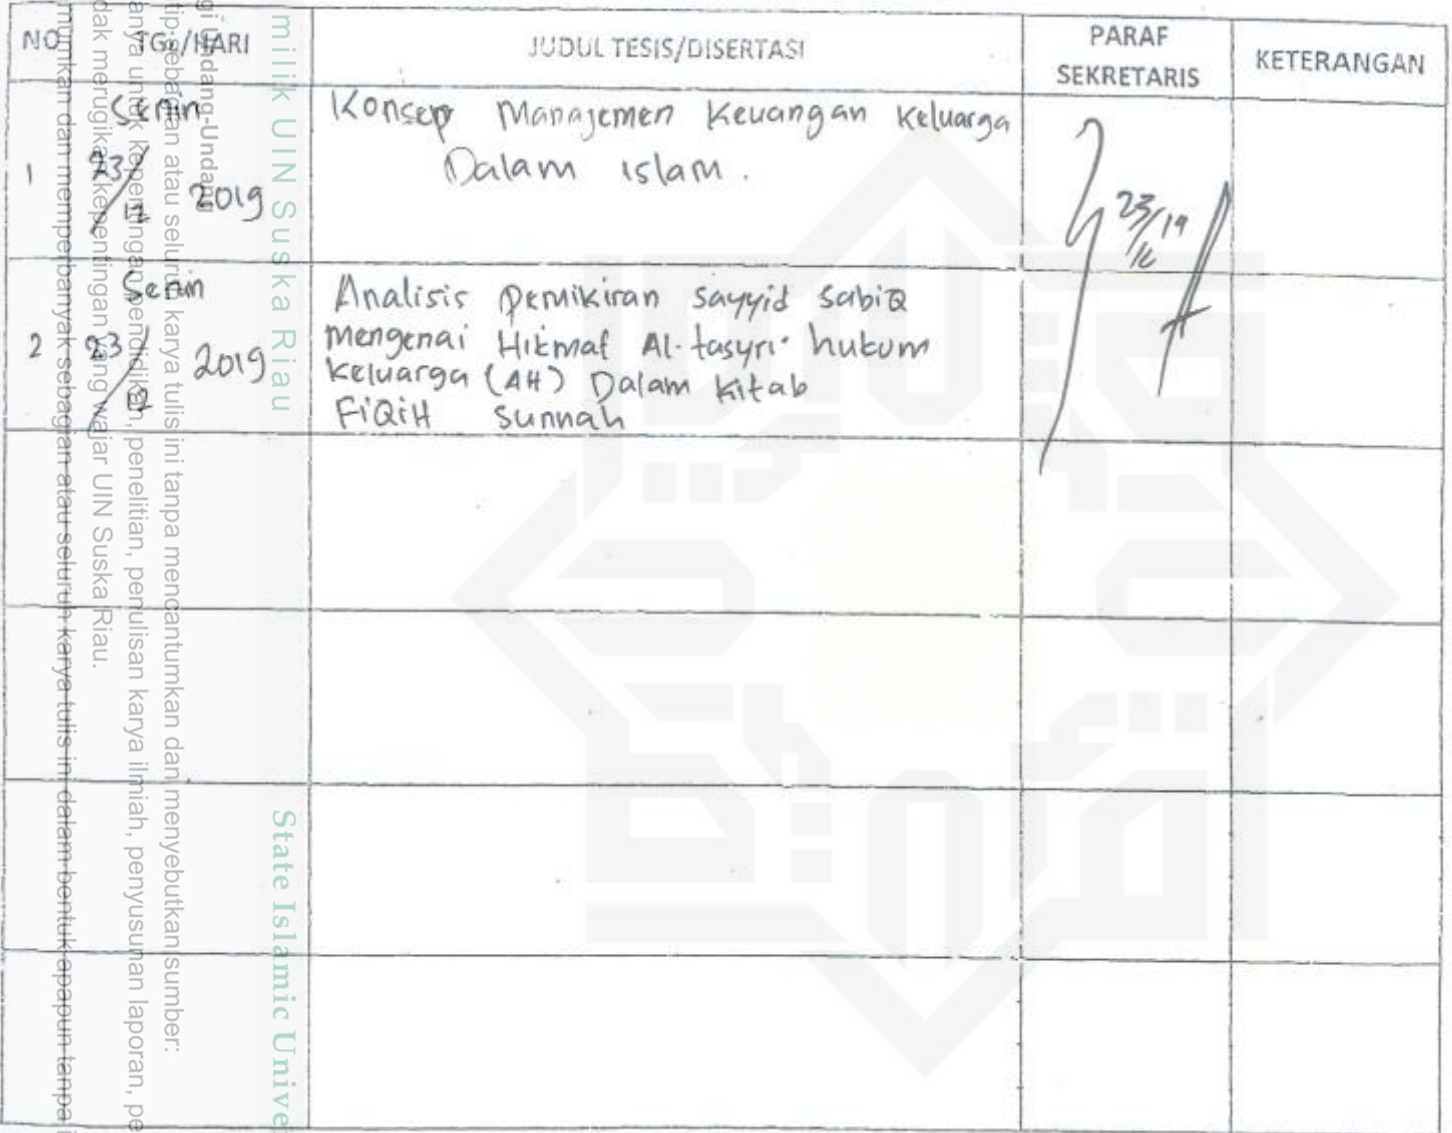 NO TGL/HARI JUDUL TESIS/DISERTASI PARAF SEKRETARIS KETERANGAN
1 Senin 23/ 2019
Konsep Manajemen Keuangan Keluarga
Dalam islam.
23/19
2 Senin 23/ 2019
Analisis Pemikiran Sayyid SabiQ
mengenai Hikmat Al-tasyri' hukum
Keluarga (AH) Dalam Kitab
FiQiH Sunnah
milik UIN Suska Riau
State Islamic Unive
gi Undang-Undang
tip sebagian atau seluruh karya tulis ini tanpa mencantumkan dan menyebutkan sumber:
anya untuk kepentingan pendidikan, penelitian, penulisan karya ilmiah, penyusunan laporan, pe
dak merugikan kepentingan yang wajar UIN Suska Riau.
mumkan dan memperbanyak sebagian atau seluruh karya tulis ini dalam bentuk apapun tanpa i